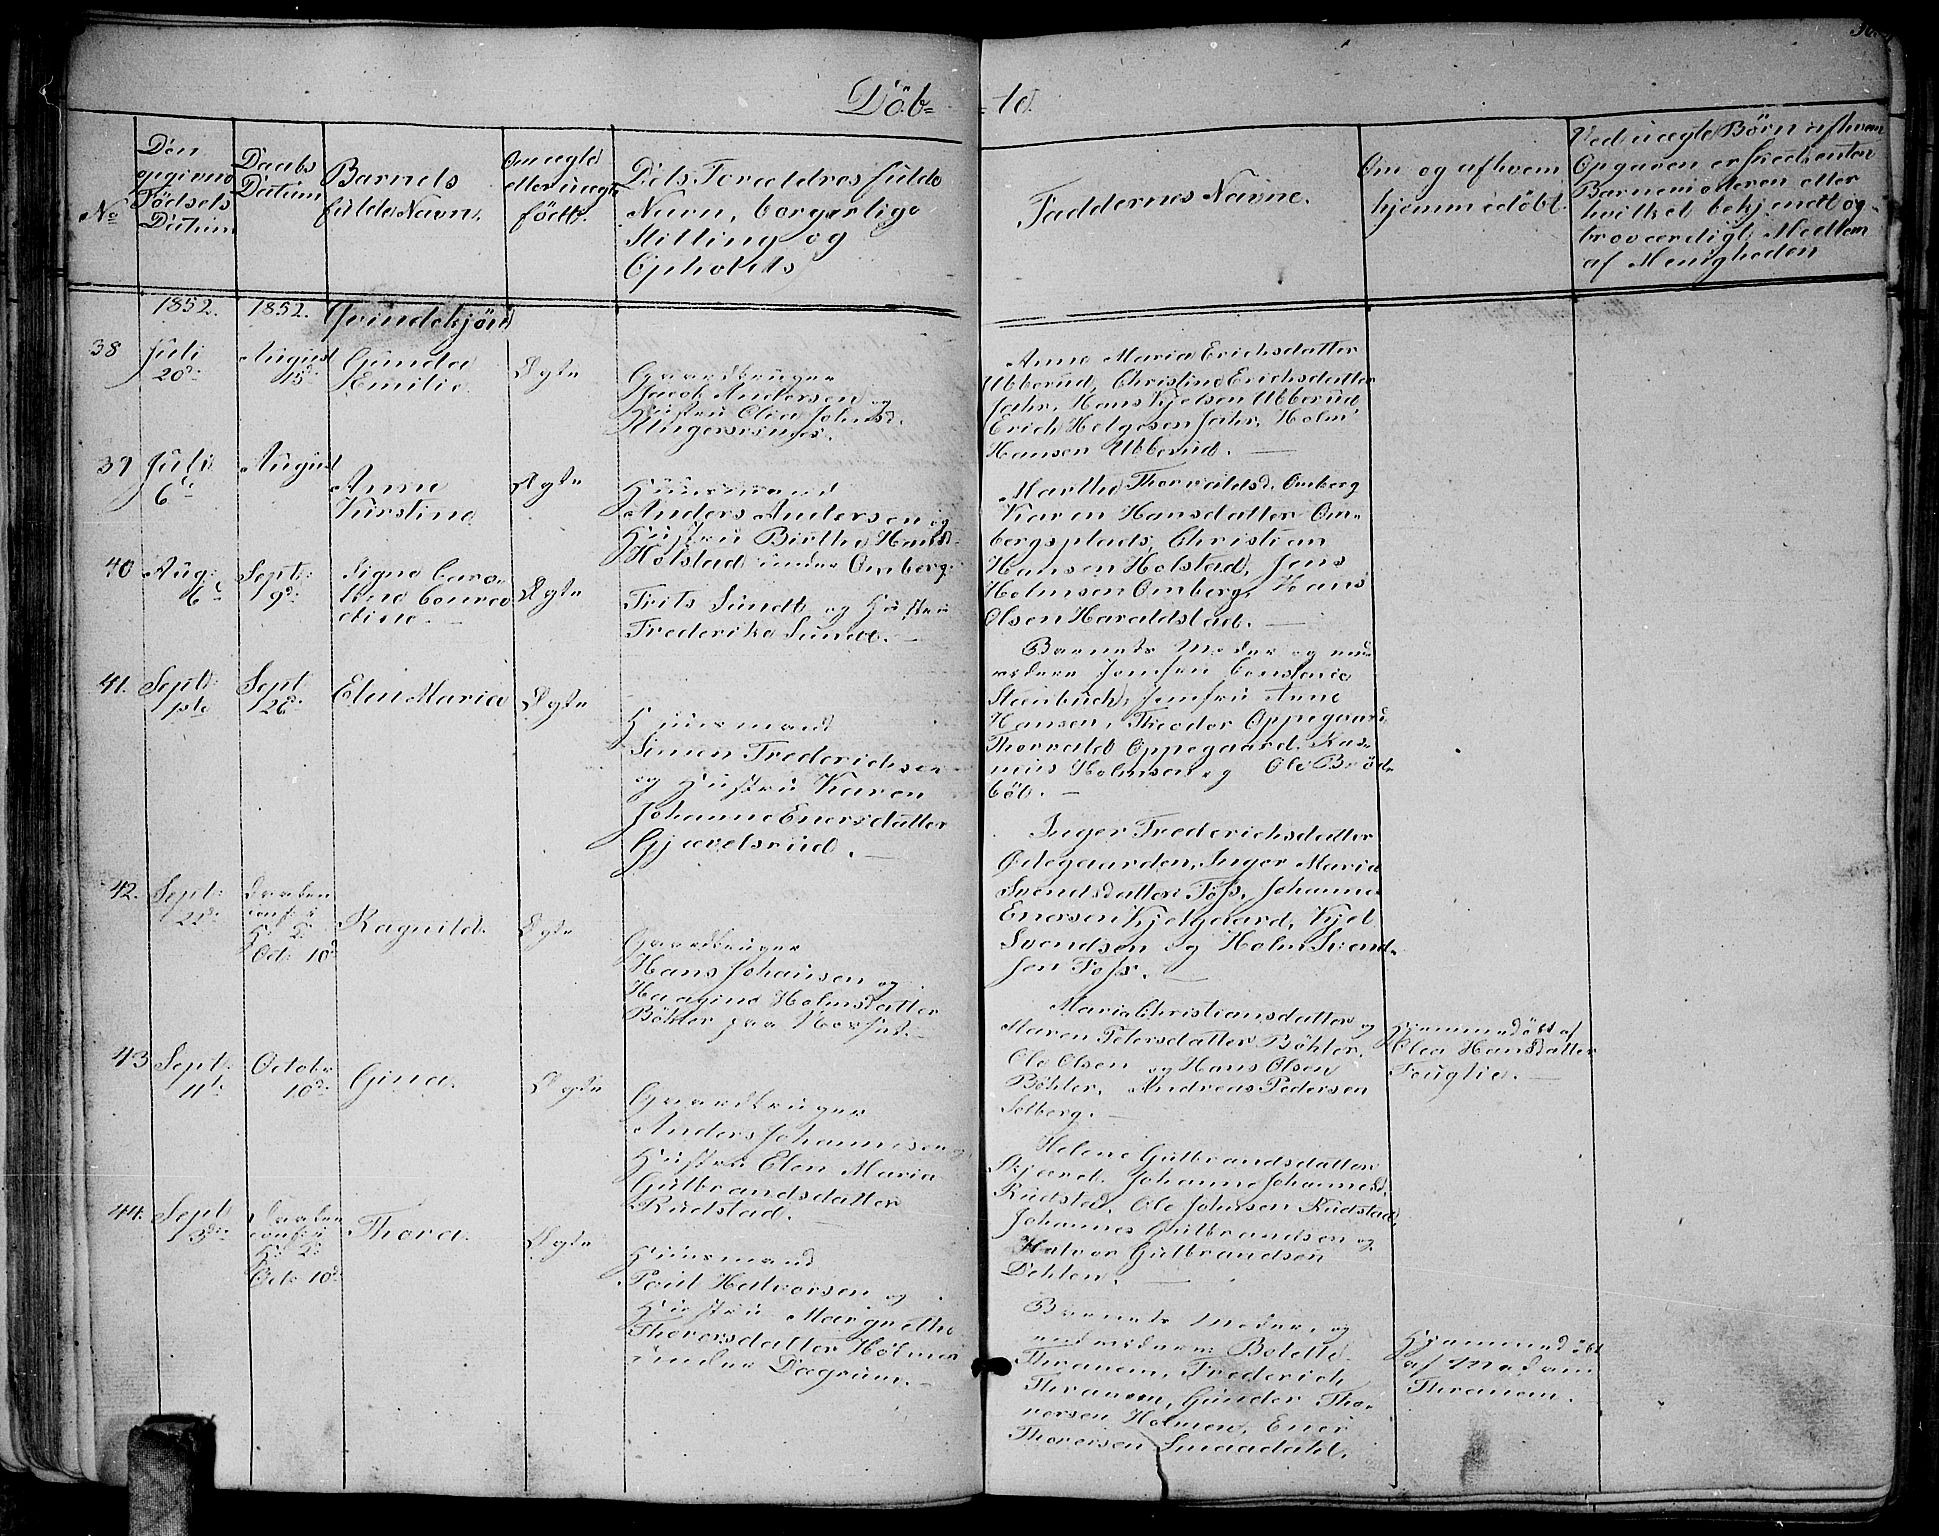 Döb= =te.
No
Den
opgivne
Födsels
Datum
Daabs
Datum
Barnets
fulde Navn.
Om ægte
eller uægte
födt.
Dets Forældres fulde
Navn, borgerlige
Stilling og
Opholds
Faddernes Navne.
Om og af hvem
hjemmedöbt.
Ved uægte Börn af hvem
Opgaven er
Barnemoderen eller
hvilket bekjendt og
troværdigt Medlem
af Menigheden
1852. 1852.
38
Juli
20de
August
15de
Gunda
Emilie
Ægte
Gaardbruger
Jacob Andersen og
Hustru Olia Johnsd.
Anne Maria Erichsdatter
Ubberud, Christine Erichsdatter
Jahr, Hans Kjelsen Ubberud
Erich Helgesen Jahr, Holm
Hansen Ubberud. —
39
Juli
6te
August
Anne
Kirstine
Ægte
Huusmand
Anders Andersen og
Hustru Birthe Hansd.
Holstad under Omberg.
Marthe Thorvaldsd. Omberg
Karen Hansdatter Om-
bergsplads, Christian
Hansen Holstad, Jens
Holmsen Omberg, Hans
Olsen Haraldstad. —
40
Aug:
6te
Sept:
9de
Signe Caro-
line Conra
dine. —
Ægte
Frits Sundt og Hustru
Frederike Sundt. —
Barnets Moder og
Jomfru Constance
Steenbuch, Jomfru Anne
Hansen, Theodor Oppegaard
Thorvald Oppegaard, Ras-
mus Holmsen og Ole Bröd-
böl. —
41.
Sept:
1ste
Sept
26de
Elen Maria
Ægte
Huusmand
Simen Frederichsen
og Hustru Karen
Johanne Enersdatter
Gjævelsrud. —
Inger Frederichsdatter
Ødegaarden, Inger Maria
Svendsdatter Foss, Johannes
Enersen Kjelgaard, Kjel
Svendsen og Holm Svend-
sen Foss. —
42.
Sept:
22de
Daaben
conf: i
K: D:
Oct: 10de
Ragnild.
Ægte
Gaardbruger
Hans Johansen og
Haagine Holmsdatter
Böhler paa
Maria Christiansdatter og
Maren Petersdatter Böhler,
Ole Olsen og Hans Olsen
Böhler, Andreas Pedersen
Solberg. —
Hjemmedöbt af
Olea Hansdatter
Fouglie. —
43
Sept:
11te
October
10de
Gina.
Ægte
Gaardbruger
Anders Johannesen og
Hustru Elen Maria
Gulbrandsdatter
Rudstad. —
Helene Gulbrandsdatter
Johanne Johannesd.
Rudstad, Ole Johnsen Rudstad,
Johannes Gulbrandsen og
Halvor Gulbrandsen
Dehlen. —
44.
Sept
3de
Daaben
conf: i
K: D:
Oct: 10de
Thora.
Ægte
Huusmand
Poul Halvorsen og
Hustru Margrethe
Thoresdatter Holmen
under Dagrum. —
Barnets Moder, og
Bolette
Thranem, Frederich
Thranem, Gunder Tho-
resen Holmen, Ener
Thoresen Smaadahl.
Hjemmedöbt
af Madam
Thranem.